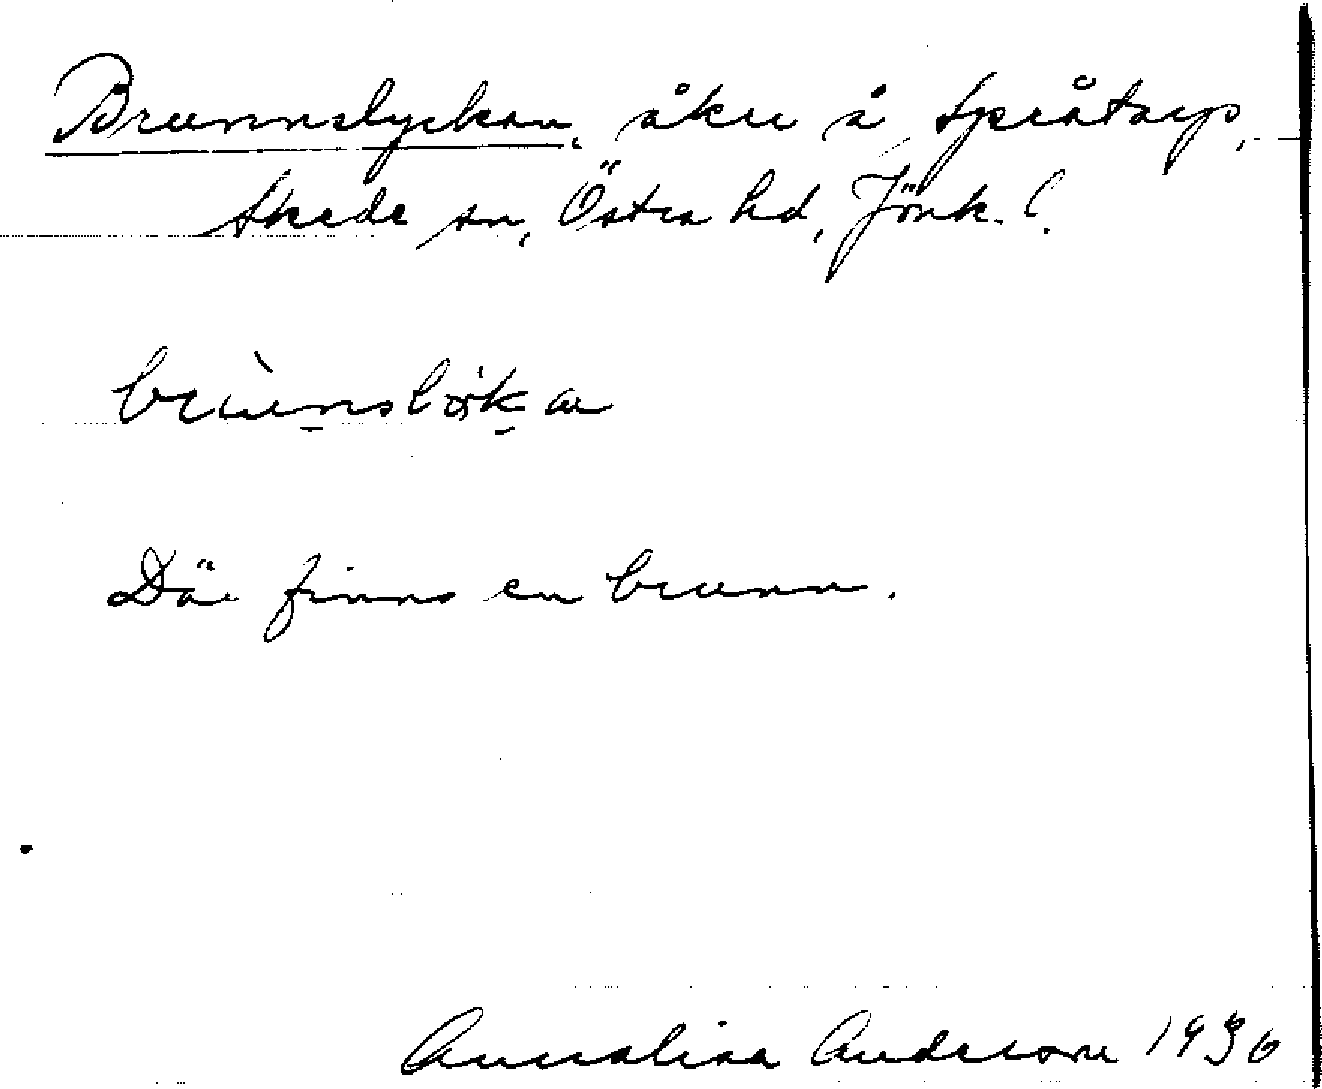 Brunnslyckan, åker å Språtorp,
Skede sn, Östra hd, Jönk. l.
brùnsløkan
Där finns en brunn.
Annalisa Anderson 1936